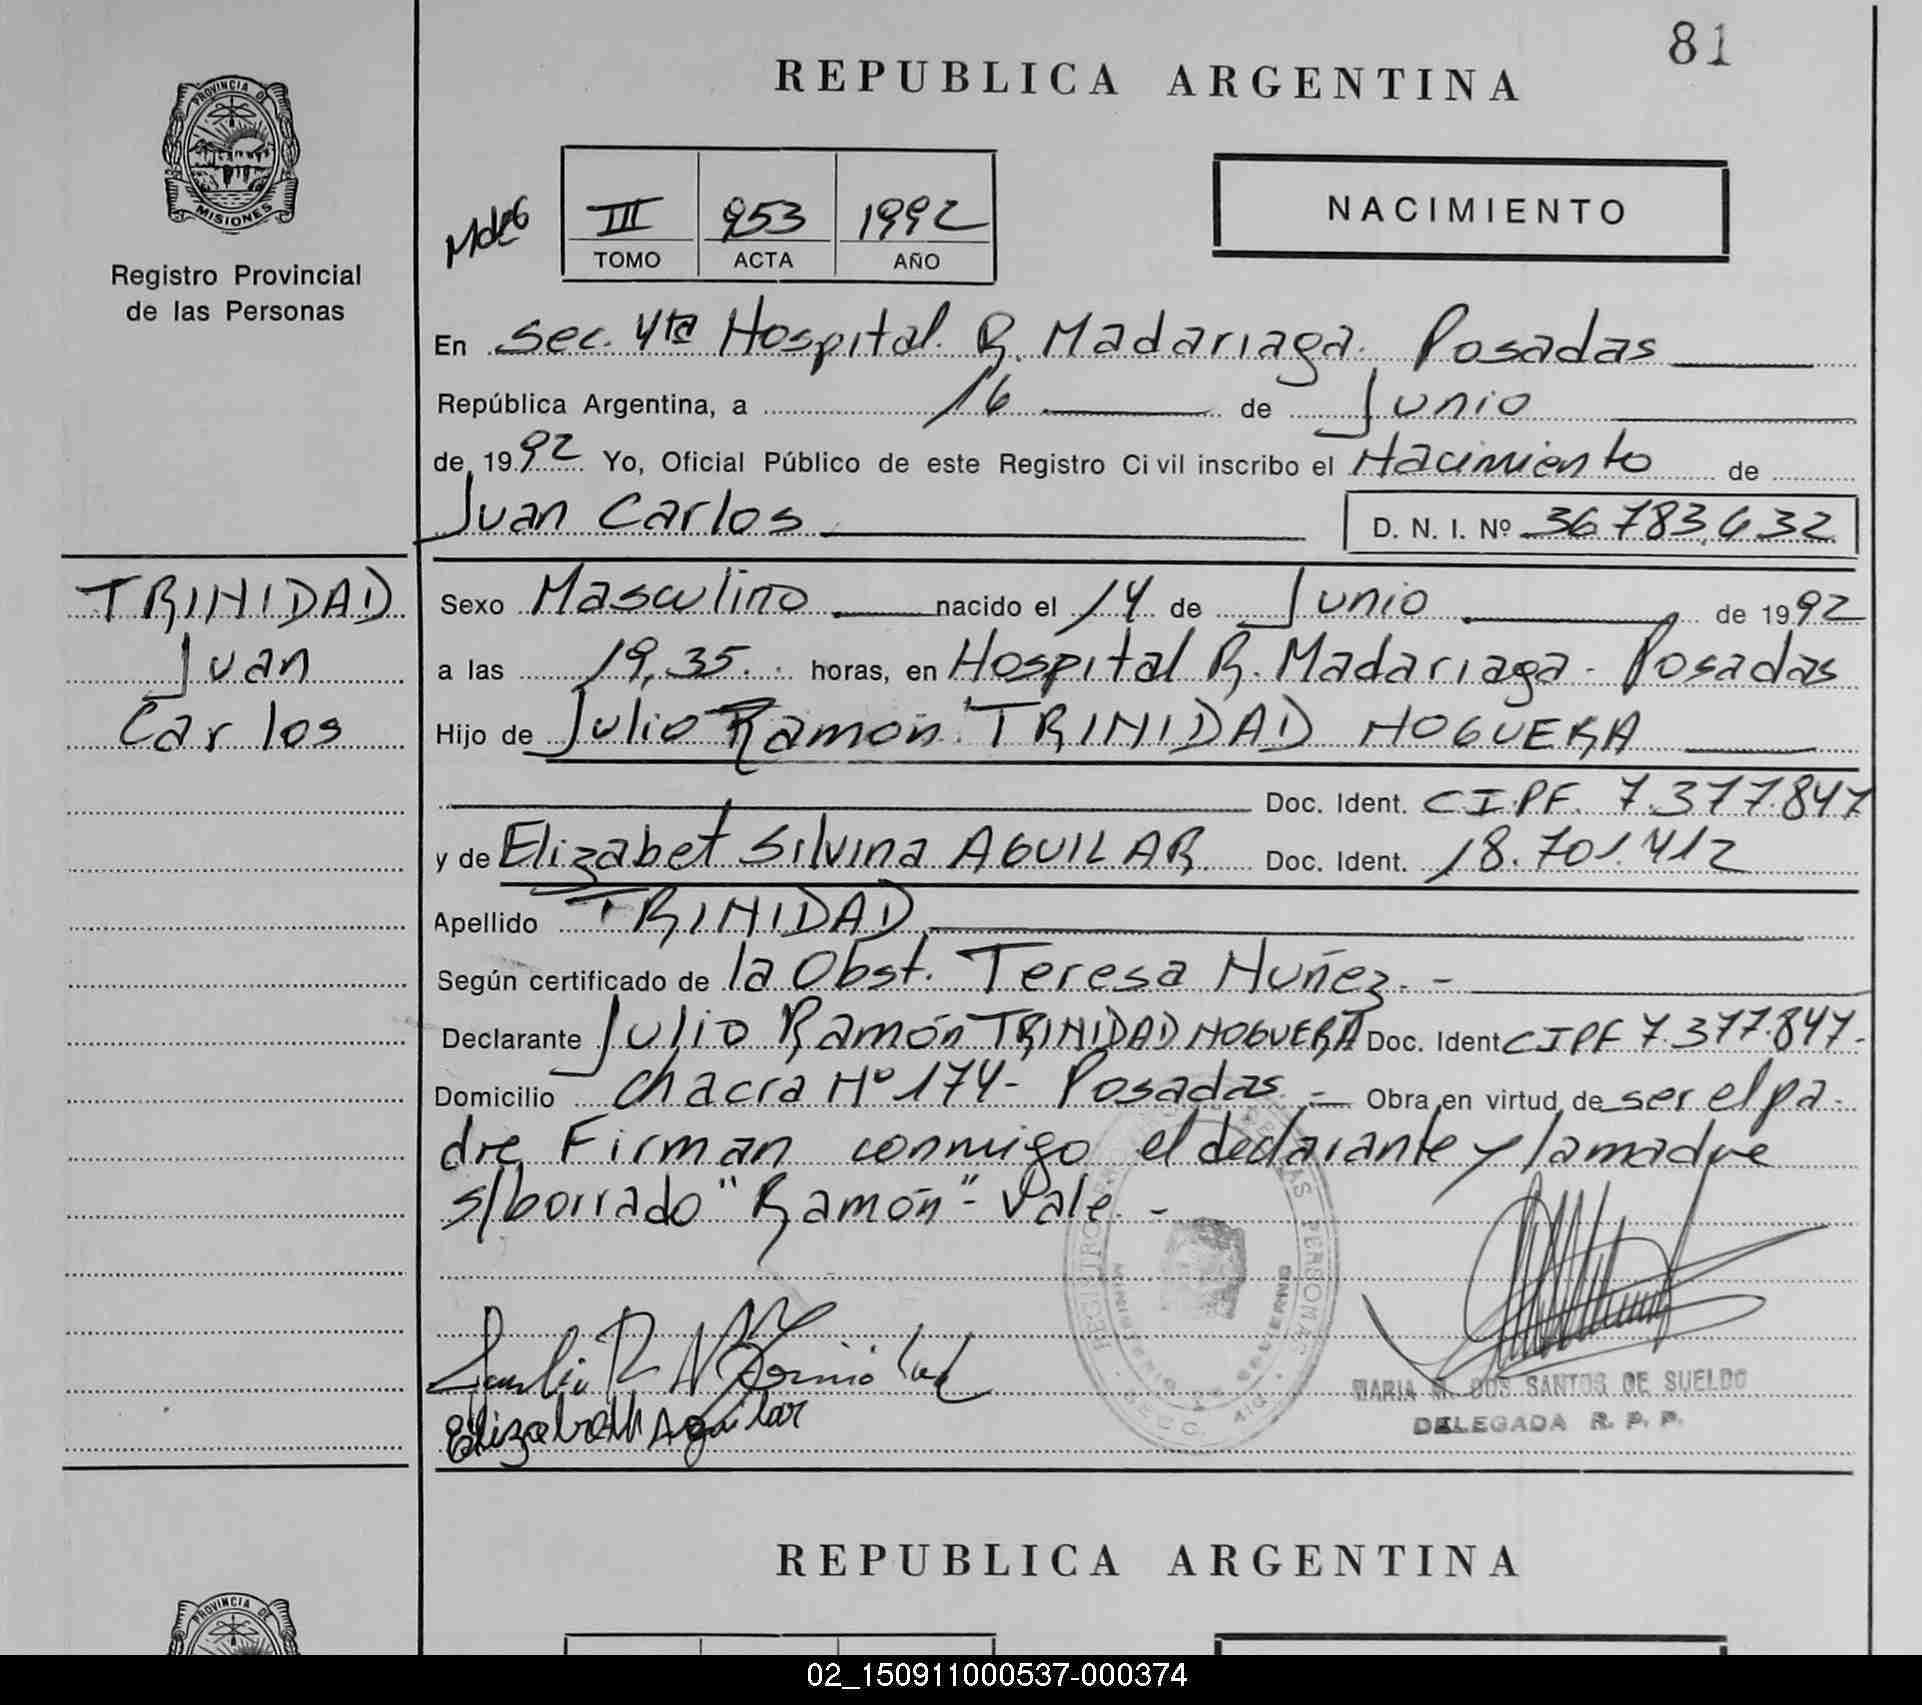 81
REPUBLICA ARGENTINA
PROVINCIA DE
MISIONES
Registro Provincial
de las Personas
III 953 1992
TOMO ACTA AÑO
NACIMIENTO
En Sec. 4ta Hospital. R. Madariaga. Posadas
República Argentina, a 16 de Junio
de 1992 Yo, Oficial Público de este Registro Civil inscribo el Nacimiento de
Juan Carlos D. N. I. Nº 36.783.632
TRINIDAD
Juan
Carlos
Sexo Masculino nacido el 14 de Junio de 1992
a las 19,35. horas, en Hospital R. Madariaga - Posadas
Hijo de Julio Ramón TRINIDAD NOGUERA
Doc. Ident. CIPF. 7.377.847
y de Elizabet Silvina AGUILAR Doc. Ident. 18.701.412
Apellido TRINIDAD
Según certificado de la Obst. Teresa Nuñez. -
Declarante Julio Ramón TRINIDAD NOGUERA Doc. Ident CIPF 7.377.847-
Domicilio Chacra Nº 174- Posadas. - Obra en virtud de ser el pa-
dre Firman conmigo el declarante y la madre
s/borrado "Ramón"- Vale. -
REGISTRO PROVINCIAL DE LAS PERSONAS
MINISTERIO DE GOBIERNO
SECC. 4ta.
Elizabeth Aguilar
MARIA M. DOS SANTOS DE SUELDO
DELEGADA R. P. P.
REPUBLICA ARGENTINA
PROVINCIA DE
02_150911000537-000374